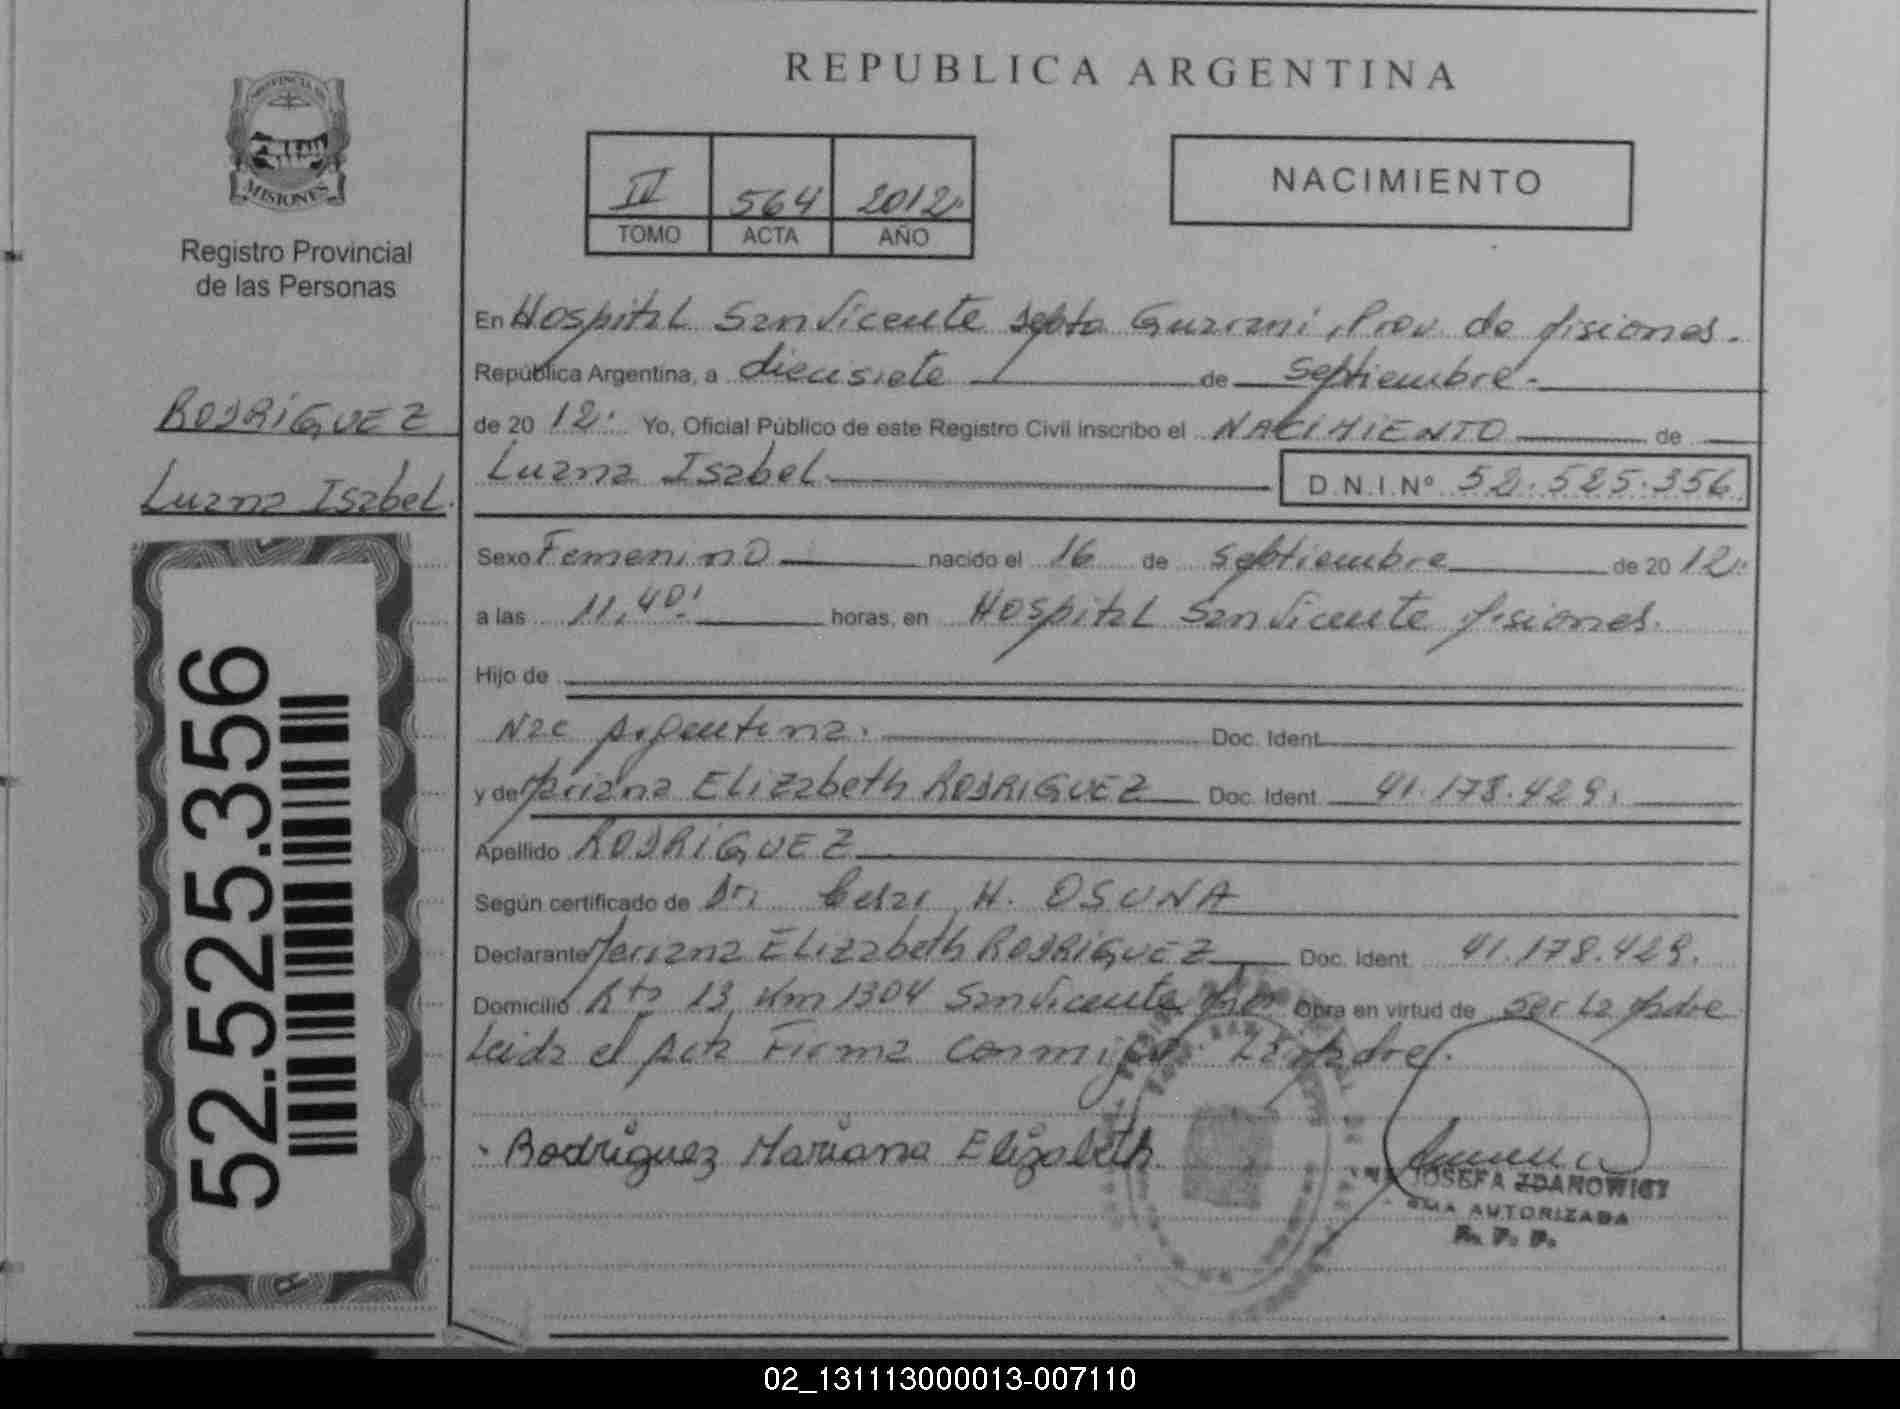 REPUBLICA ARGENTINA
PROVINCIA DE
MISIONES
Registro Provincial
de las Personas
IV 564 2012
TOMO ACTA AÑO
NACIMIENTO
RODRIGUEZ
Luana Isabel.
52.525.356
En Hospital San Vicente Depto Guarani, Prov. de Misiones.
República Argentina, a diecisiete de Septiembre
de 20 12. Yo, Oficial Público de este Registro Civil inscribo el NACIMIENTO de
Luana Isabel D.N.I.Nº 52.525.356
Sexo Femenino nacido el 16 de Septiembre de 20 12.
a las 11,40' horas, en Hospital San Vicente Misiones.
Hijo de
Nac Argentina. Doc. Ident.
y de Mariana Elizabeth RODRIGUEZ Doc. Ident 41.178.429.
Apellido RODRIGUEZ
Según certificado de Dr. Cesar H. OSUNA
Declarante Mariana Elizabeth RODRIGUEZ Doc. Ident. 41.178.429.
Domicilio Rta 13 Km 1304 San Vicente Mnes Obra en virtud de Ser La Madre
Leida el Acta Firma conmigo La Madre.
Rodriguez Mariana Elizabeth
JOSEFA ZDANOWICZ
FIRMA AUTORIZADA
R. P. P.
02_131113000013-007110